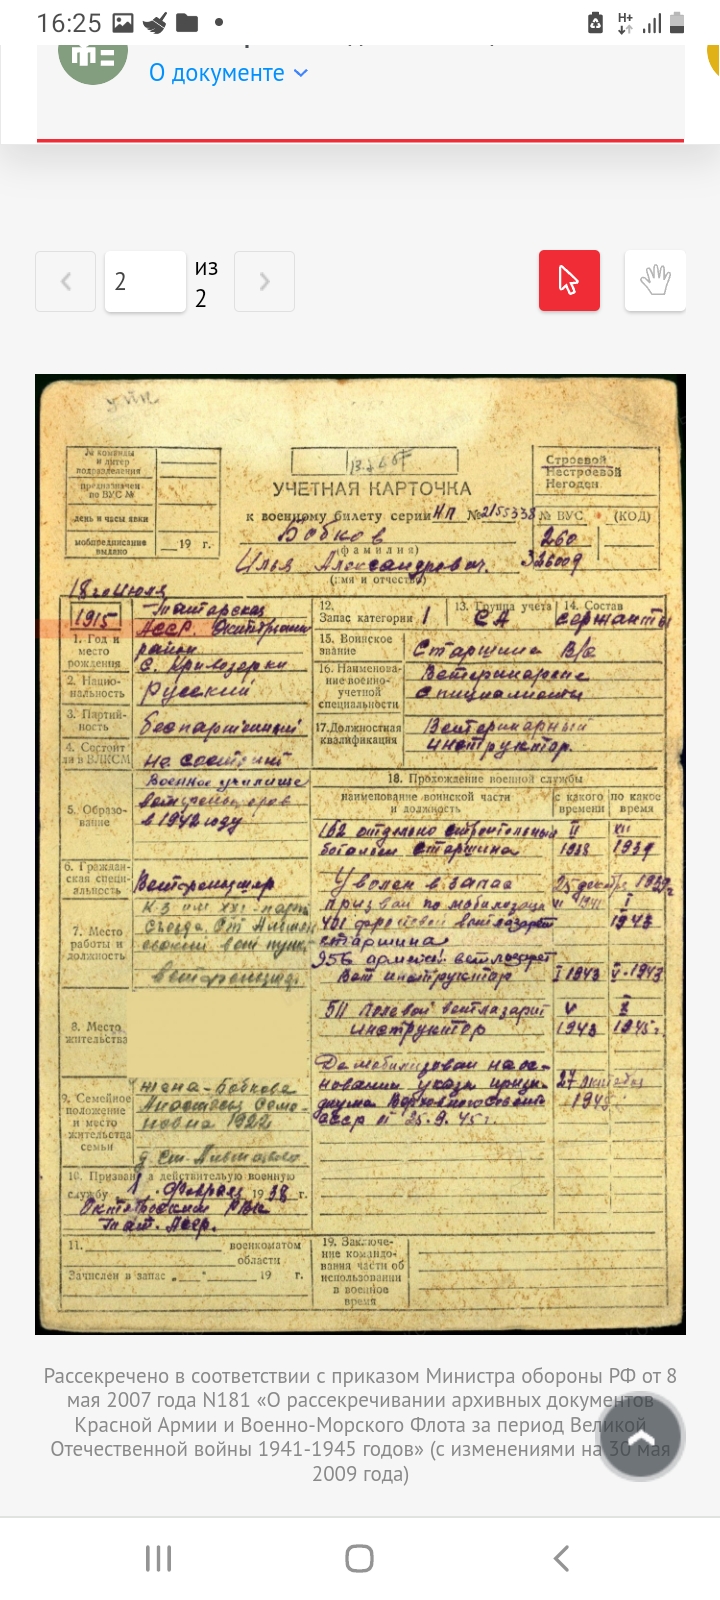 16:25
О документе
2
из
2
№ команды
и литер
подразделения
предназначен
по ВУС №
день и часы явки
мобпредписание
выдано
19 г.
Строевой
Нестроевой
Негоден
УЧЕТНАЯ КАРТОЧКА
к военному билету серии НП № 2155338
№ ВУС
(КОД)
Бобков
260
(фамилия)
Илья Александрович.
326009
(имя и отчество)
18го Июля
1915
Татарская
АССР. Октябрьский
район
с. Кривозерки
1. Год и
место
рождения
2. Нацио-
нальность
Русский
3. Партий-
ность
беспартийный
4. Состоит
ли в ВЛКСМ
не состоит
5. Образо-
вание
Военное училище
ветфельдшеров
в 1942 году
6. Граждан-
ская специ-
альность
Ветфельдшер
7. Место
работы и
должность
К-з им XXI парт
Съезда
ветфельдшер
8. Место
жительства
9. Семейное
положение
и место
жительства
семьи
жена - Бобкова
Анастасия Семе-
новна 1922
10. Призван на действительную военную
службу 1 Февраля 1938 г.
Октябрьским РВК
Тат. АССР.
11.
военкоматом
области
Зачислен в запас „ “ 19 г.
12.
Запас категории 1
13. Группа учета
СА
14. Состав
сержанты
15. Воинское
звание
Старшина В/с
16. Наименова-
ние военно-
учетной
специальности
Ветеринарные
специалисты
17. Должностная
квалификация
Ветеринарный
инструктор.
18. Прохождение военной службы
наименование воинской части
и должность
с какого
времени
по какое
время
152 отдельно строительный
II
XII
батальон старшина
1938
1939
Уволен в запас
25 декабря 1939г
призван по мобилизации
VI 1941
I
461 фронтовой ветлазарет
1943
старшина
956 армейс. ветлазарет
Вет инструктор
I 1943
V-1943
511 Полевой ветлазарет
V
X
инструктор
1943
1945г.
Демобилизован на ос-
новании указа прези-
диума Верховного Совета
СССР от 25.9.45г.
27 октября
1945
19. Заключе-
ние командо-
вания части об
использовании
в военное
время
Рассекречено в соответствии с приказом Министра обороны РФ от 8
мая 2007 года N181 «О рассекречивании архивных документов
Красной Армии и Военно-Морского Флота за период Великой
Отечественной войны 1941-1945 годов» (с изменениями на 30 мая
2009 года)